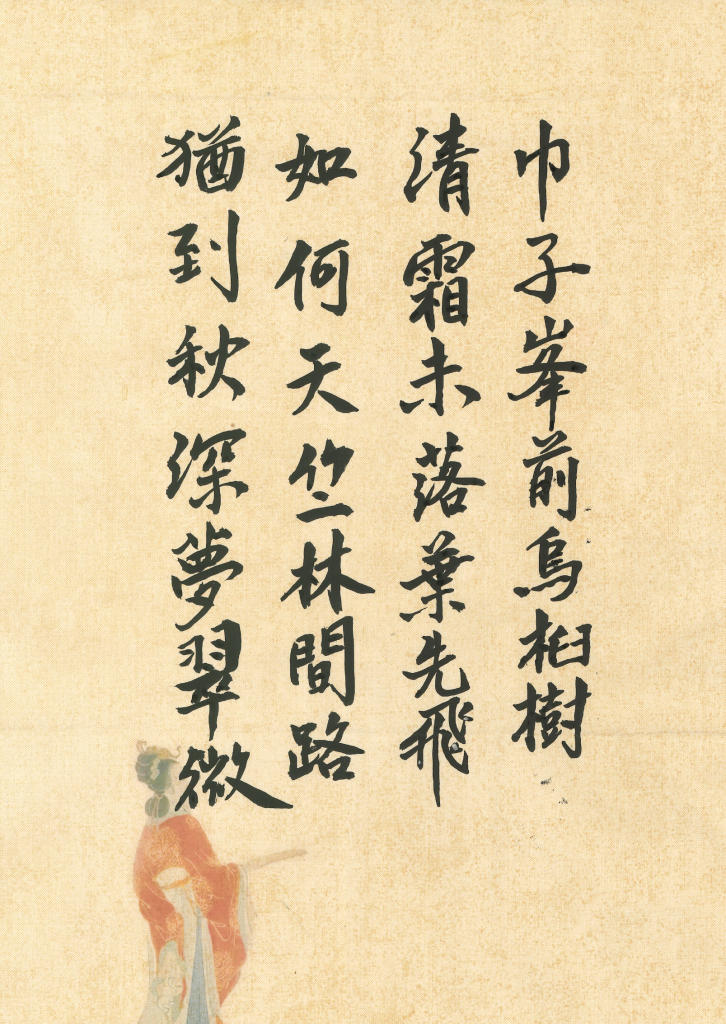 巾子峯前烏桕樹
清霜未落葉先飛
如何天竺林間路
猶到秋深夢翠微